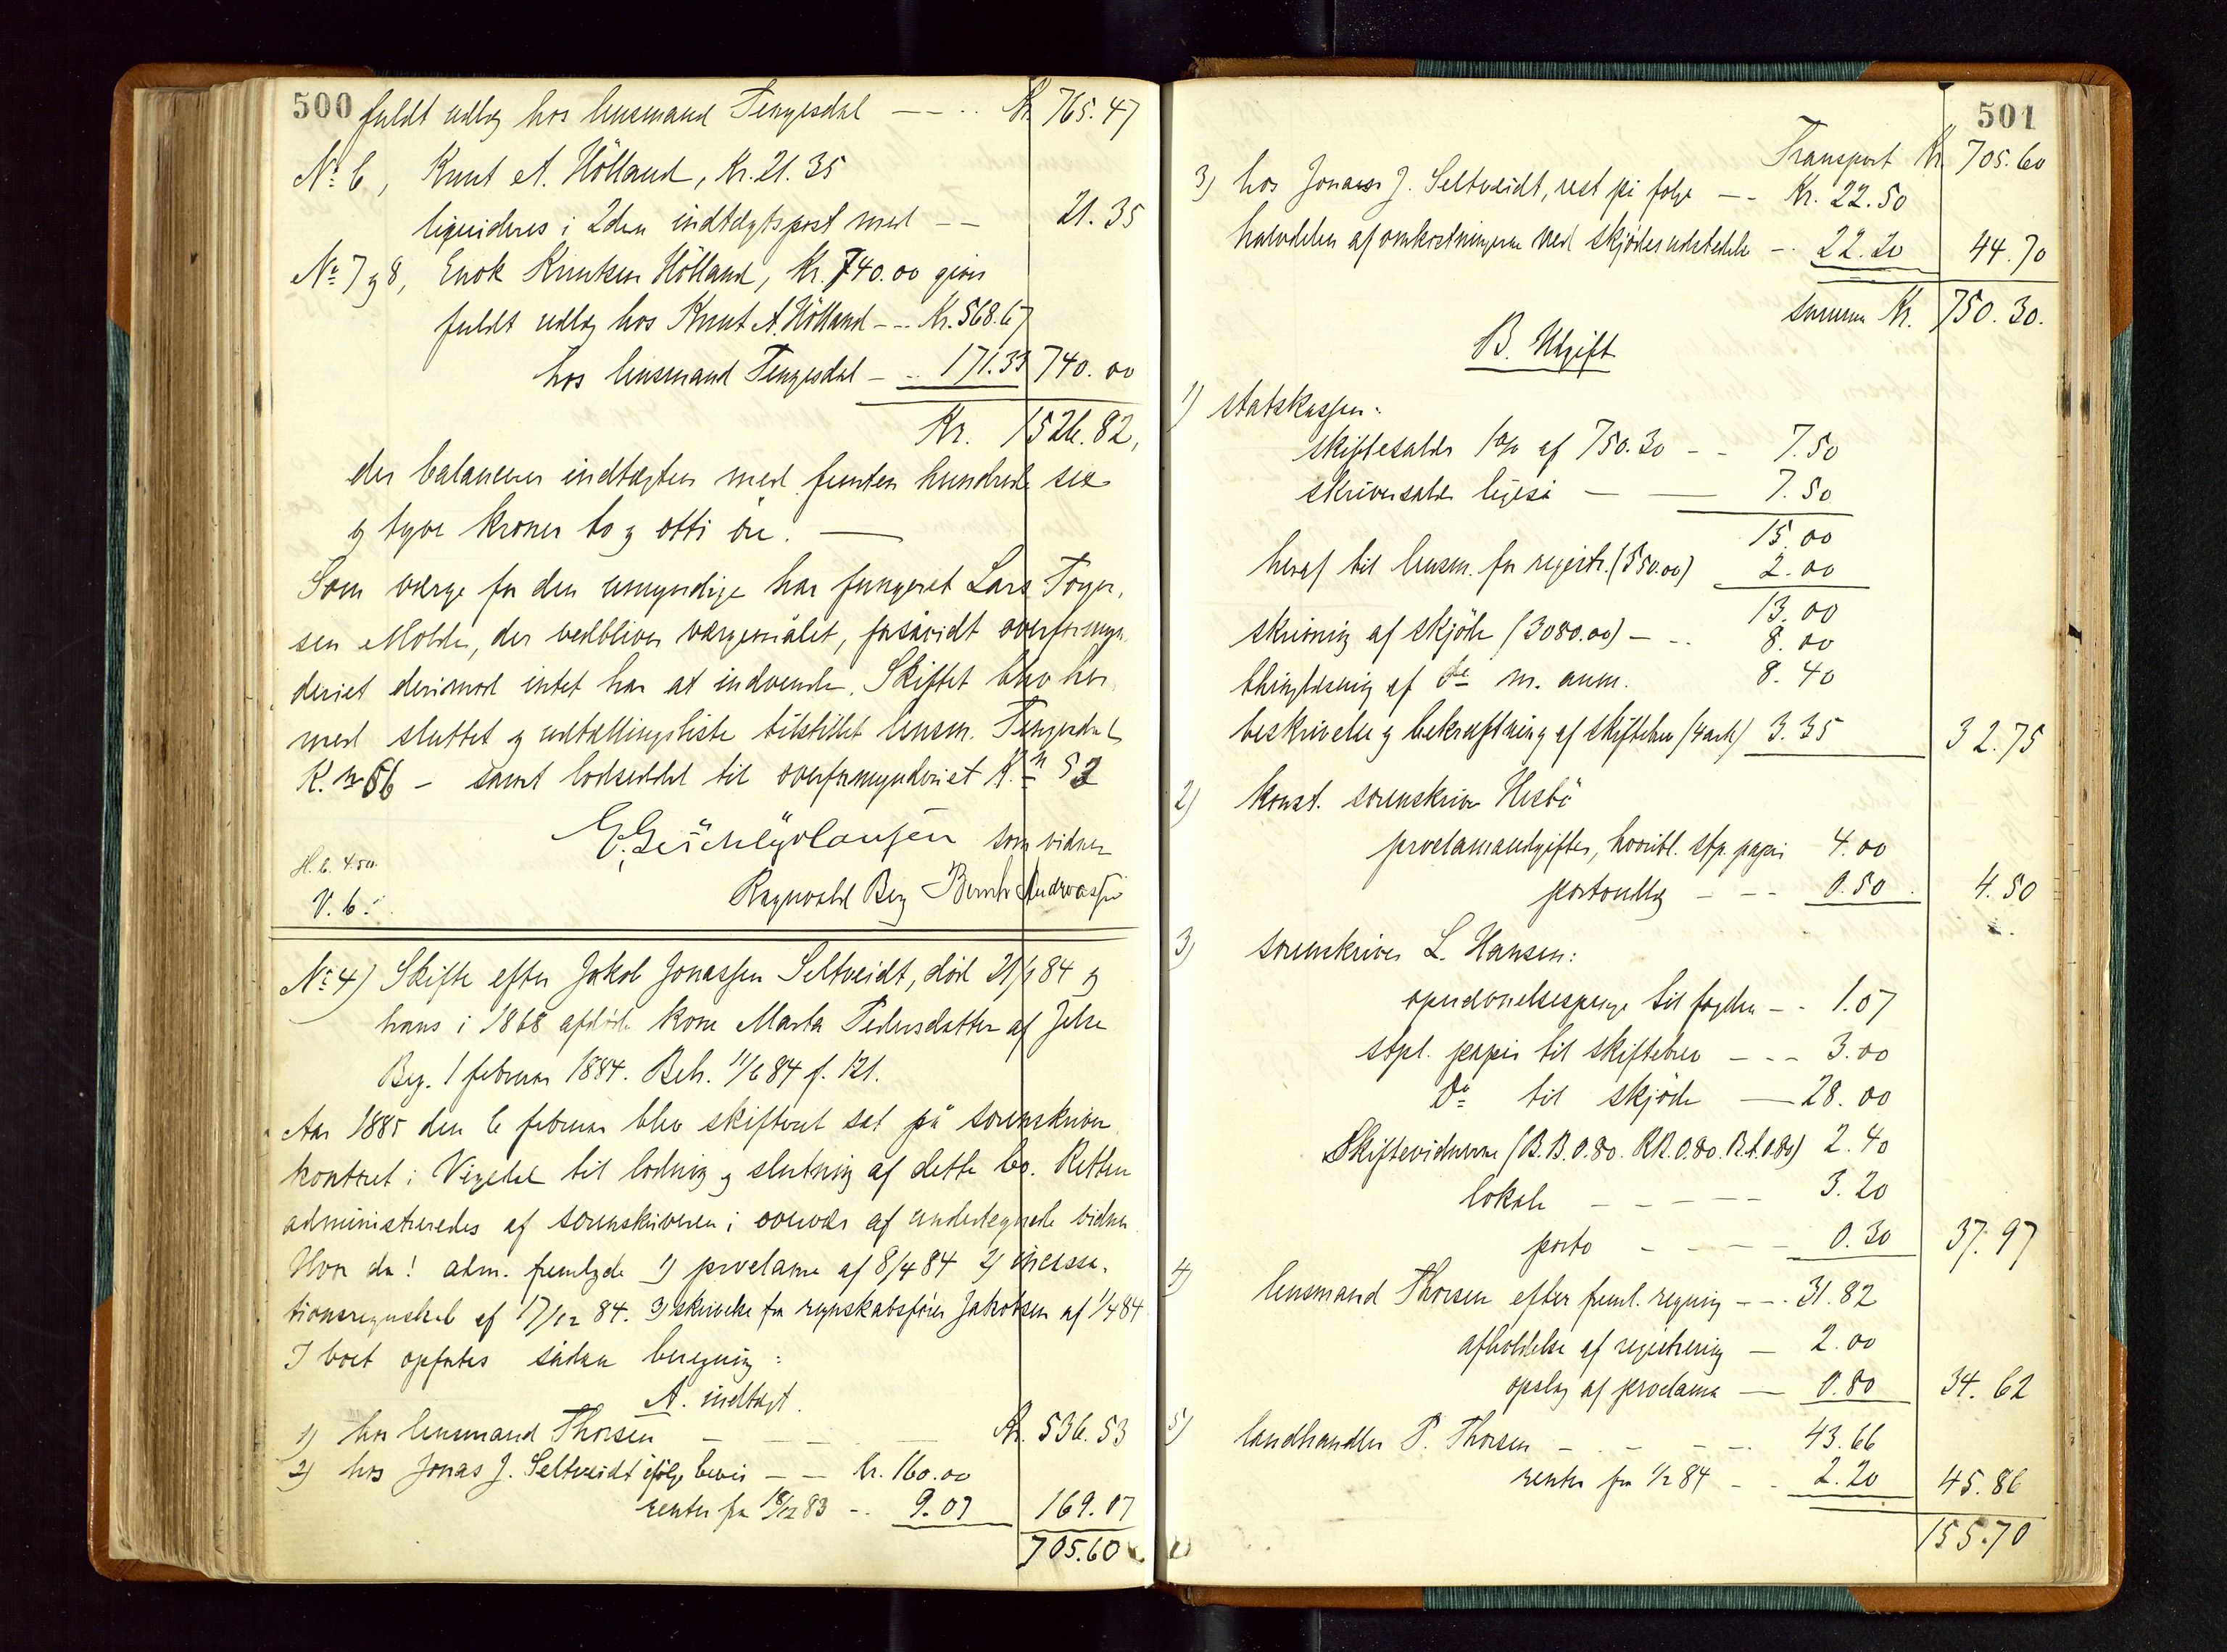 500 fuldt udlæg hos lensmand Tengesdal — — . . Kr. 765.47
No 6, Knut A. Hölland, Kr. 21.35
liquideres i 2den indtægtspost med — — 21.35
No 7 og 8, Enok Knutsen Hölland, Kr. 740.00 gives
fuldt udlæg hos Knut A. Hölland — Kr. 568.67
hos lensmand Tengesdal — .. 171.33 740.00
Kr. 1526.82,
der balancerer indtægten med femten hundrede sex
og tyve kroner to og otti öre. —
Som værge for den umyndige har fungeret Lars Torger-
sen Molde, der vedbliver værgemålet, forsåvidt overformyn-
deriet derimod intet har at indvende. Skiftet blev her-
med sluttet og udtællingsliste tilstillet lensm. Tengesdal
K. n 56 — samt lodseddel til overformynderiet K. n 52
som vidner
H. b. 4.50.
V. b.
Ragnvald Berg Bernh Andreassen
No 4) Skifte efter Jakob Jonassen Seltveidt, död 21/1 84 og
hans i 1868 afdöde kone Marta Pedersdatter af Jelse
Beg. 1 februar 1884. Beh. 11/6 84 f. 121.
Aar 1885 den 6 februar blev skifteret sat på sorenskriver-
kontoret i Vigedal til lodning og slutning af dette bo. Retten
administreredes af sorenskriveren i overvær af undertegnede vidner
Hvor da! adm. fremlagde 1) proclama af 8/4 84 2) incassa-
tionsregnskab af 17/12 84. 3) skrivelse fra regnskabsförer Jakobsen af 1/4 84
I boet opgjordes sådan beregning:
A. indtægt.
1) hos lensmand Thorsen — — — — Kr. 536.53
2) hos Jonas J. Seltveidt ifölge bevis — — Kr. 160.00
renter fra 18/12 83 — . 9.07 169.07
705.60
501
Transport Kr. 705.60
3) hos Jonas J. Seltveidt, rest på folge — - Kr. 22.50
halvdelen af omkostningerne ved skjödes udstedelse — . 22.20 44.70
summa Kr. 750.30.
B. Udgift
1) statskassen:
skiftesalær 1% af 750.30 — - 7.50
skriversalær ligeså — — 7.50
15.00
heraf til lensm. for registr. (550.00) 2.00
13.00
skrivning af skjöde (3080.00) — - . 8.00
thinglæsning af do m. anm. 8.40
beskrivelse og bekræftning af skiftebrev (4 ark) 3.35 32.75
2) konst. sorenskriver Hesbö
proclamaudgifter, hvoribl. stp. papir 4.00
portoudlæg — — - 0.50 4.50
3) sorenskriver L. Hansen:
opudsnelsespenge til fogden — - 1.07
stpl. papir til skiftebrev — - - 3.00
Do til skjöde — 28.00
Skiftevidnerne (B.B. 0.80. R.B. 0.80. B.A. 0.80) 2.40
lokale — — — — 3.20
porto - — — — 0.30 37.97
4) lensmand Thorsen efter freml. regning — - . 31.82
afholdelse af registrering — 2.00
opslag af proclama — 0.80 34.62
5) landhandler P. Thorsen — - — - 43.66
renter fra 1/2 84 - - 2.20 45.86
155.70